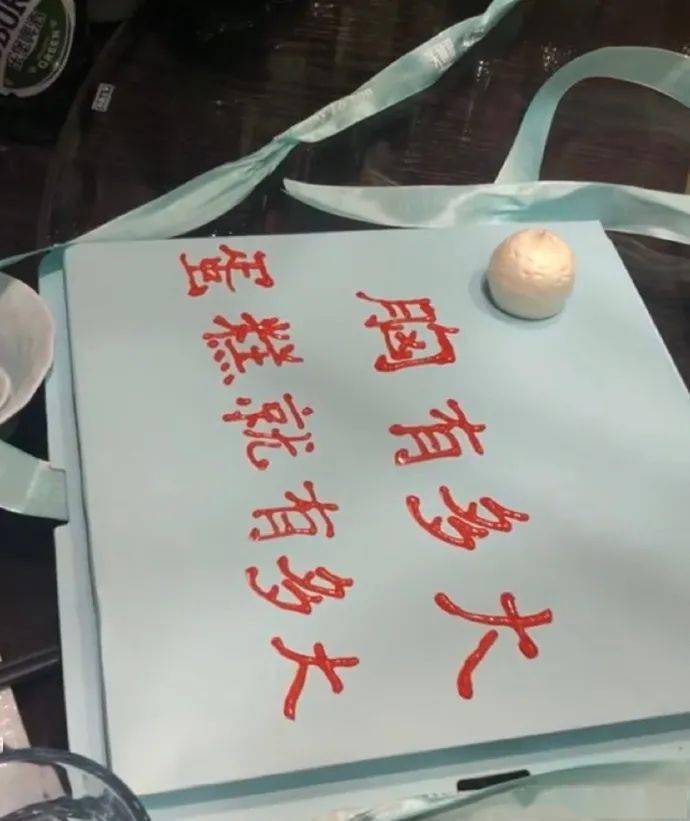 胸有多大
蛋糕就有多大
GREEN